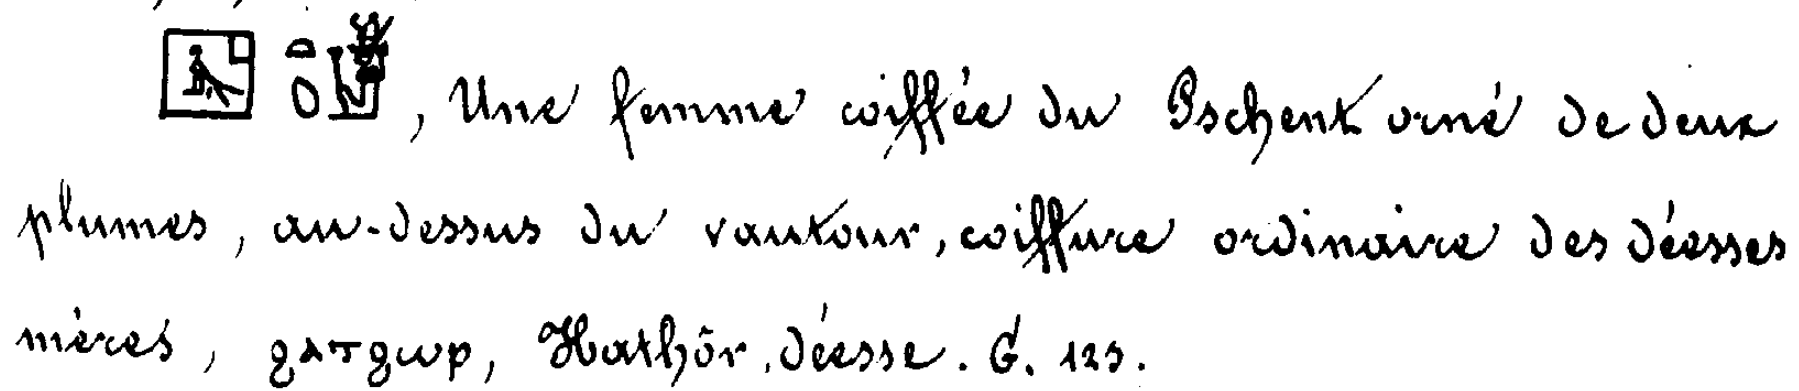 , Une femme coiffée du Pschent orné de deux
plumes, au-dessus du vautour, coiffure ordinaire des déesses
mères, ϩⲁⲧϩⲱⲣ, Hathôr, déesse. G. 123.